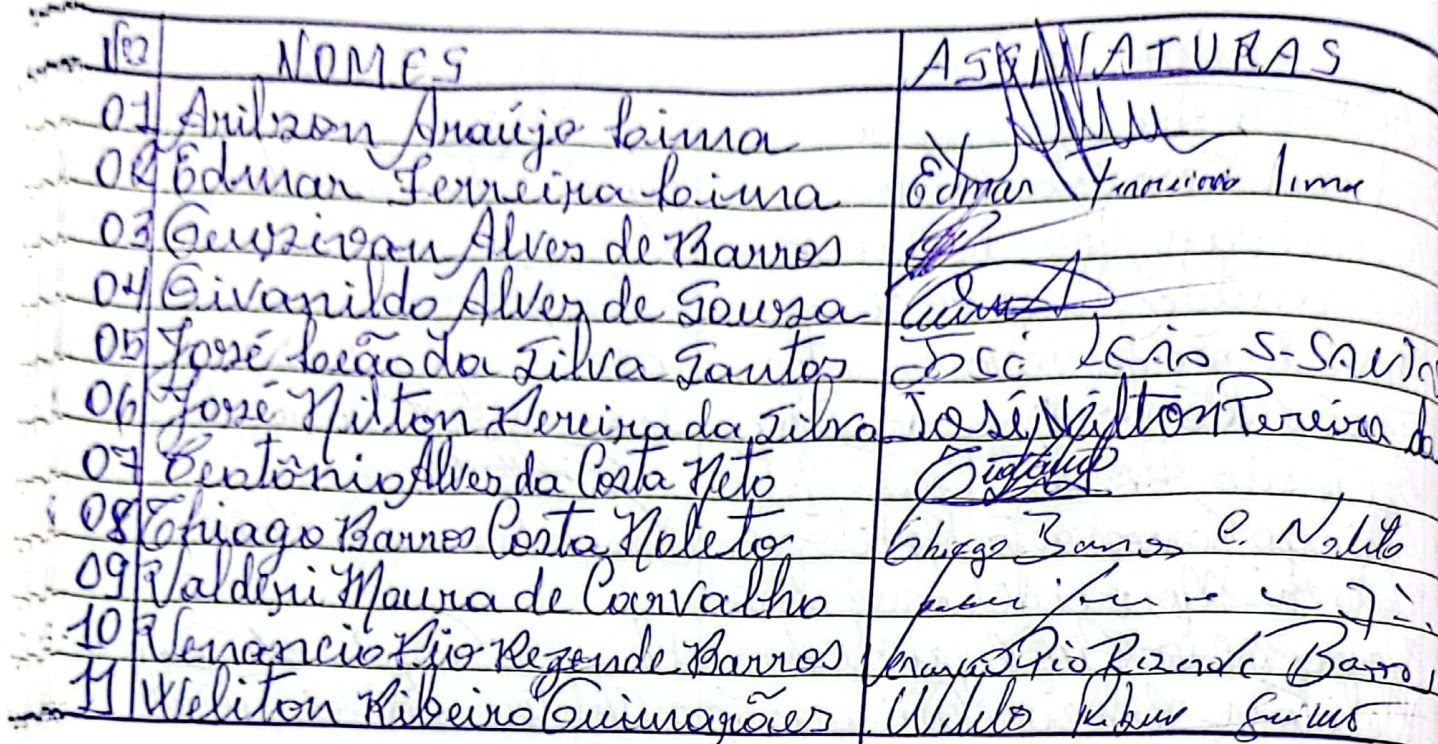 Nº NOMES ASSINATURAS
01 Arilson Araújo Lima
02 Edmar Ferreira Lima Edmar Ferreira lima
03 Geuzivan Alves de Barros
04 Givanildo Alves de Souza
05 José Leão da Silva Santos José Leão S. Santos
06 José Nilton Pereira da Silva José Nilton Pereira da
07 Teotônio Alves da Costa Neto
08 Thiago Barros Costa Noleto Thiago Barros C. Noleto
09 Valdeni Moura de Carvalho
10 Venancio Pio Rezende Barros Pio Rezende Barros
11 Weliton Ribeiro Guimarães